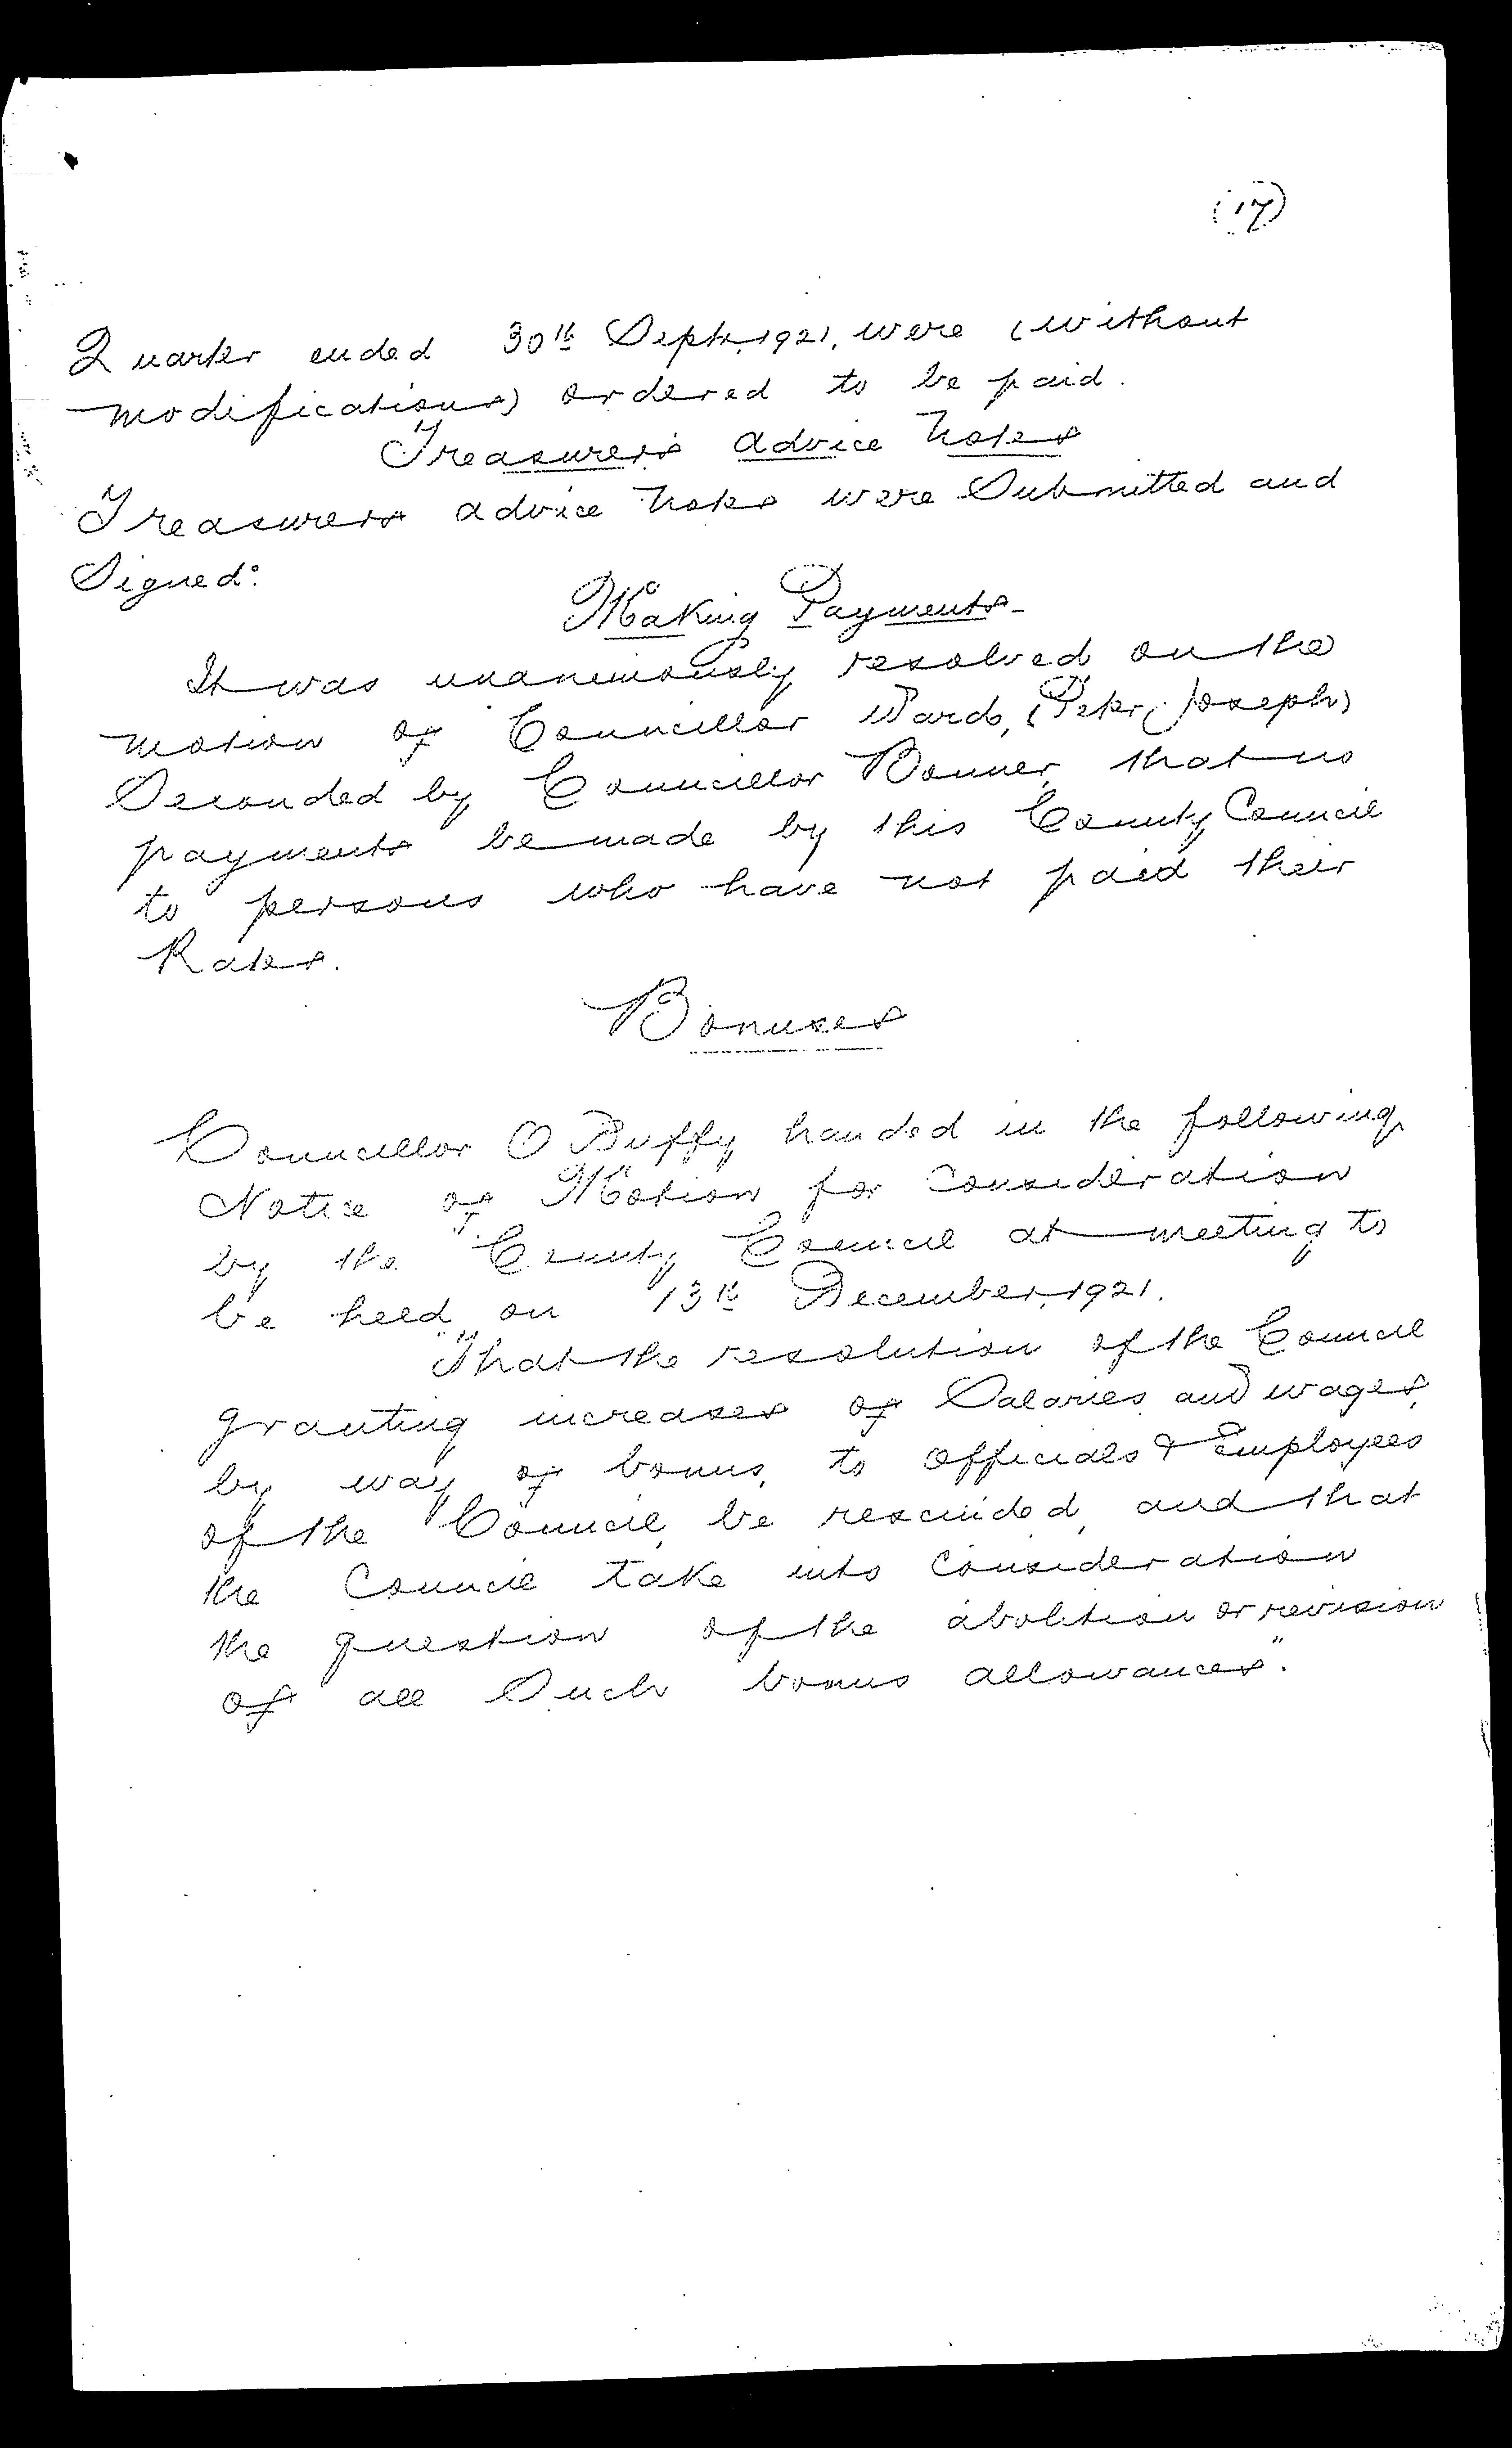 (17)
Quarter ended 30th Sept, 1921, were (without
modifications) ordered to be paid.
Treasurer's advice Notes
Treasurers advice Notes were Submitted and
Signed:
Making Payments-
It was unanimously resolved on the
motion of Councillor Ward, (Peter Joseph)
Seconded by Councillor Bonner, that no
payments be made by this County Council
to persons who have not paid their
Rates.
Bonuses
Councillor O Duffy handed in the following
Notice of Motion for Consideration
by the County Council at meeting to
be held on 13th December, 1921.
"That the resolution of the Council
granting increases of Salaries and wages,
by way of bonus, to Officials & Employees
of the Council, be rescinded, and that
the Council take into Consideration
the question of the abolition or revision
of all Such bonus allowances".